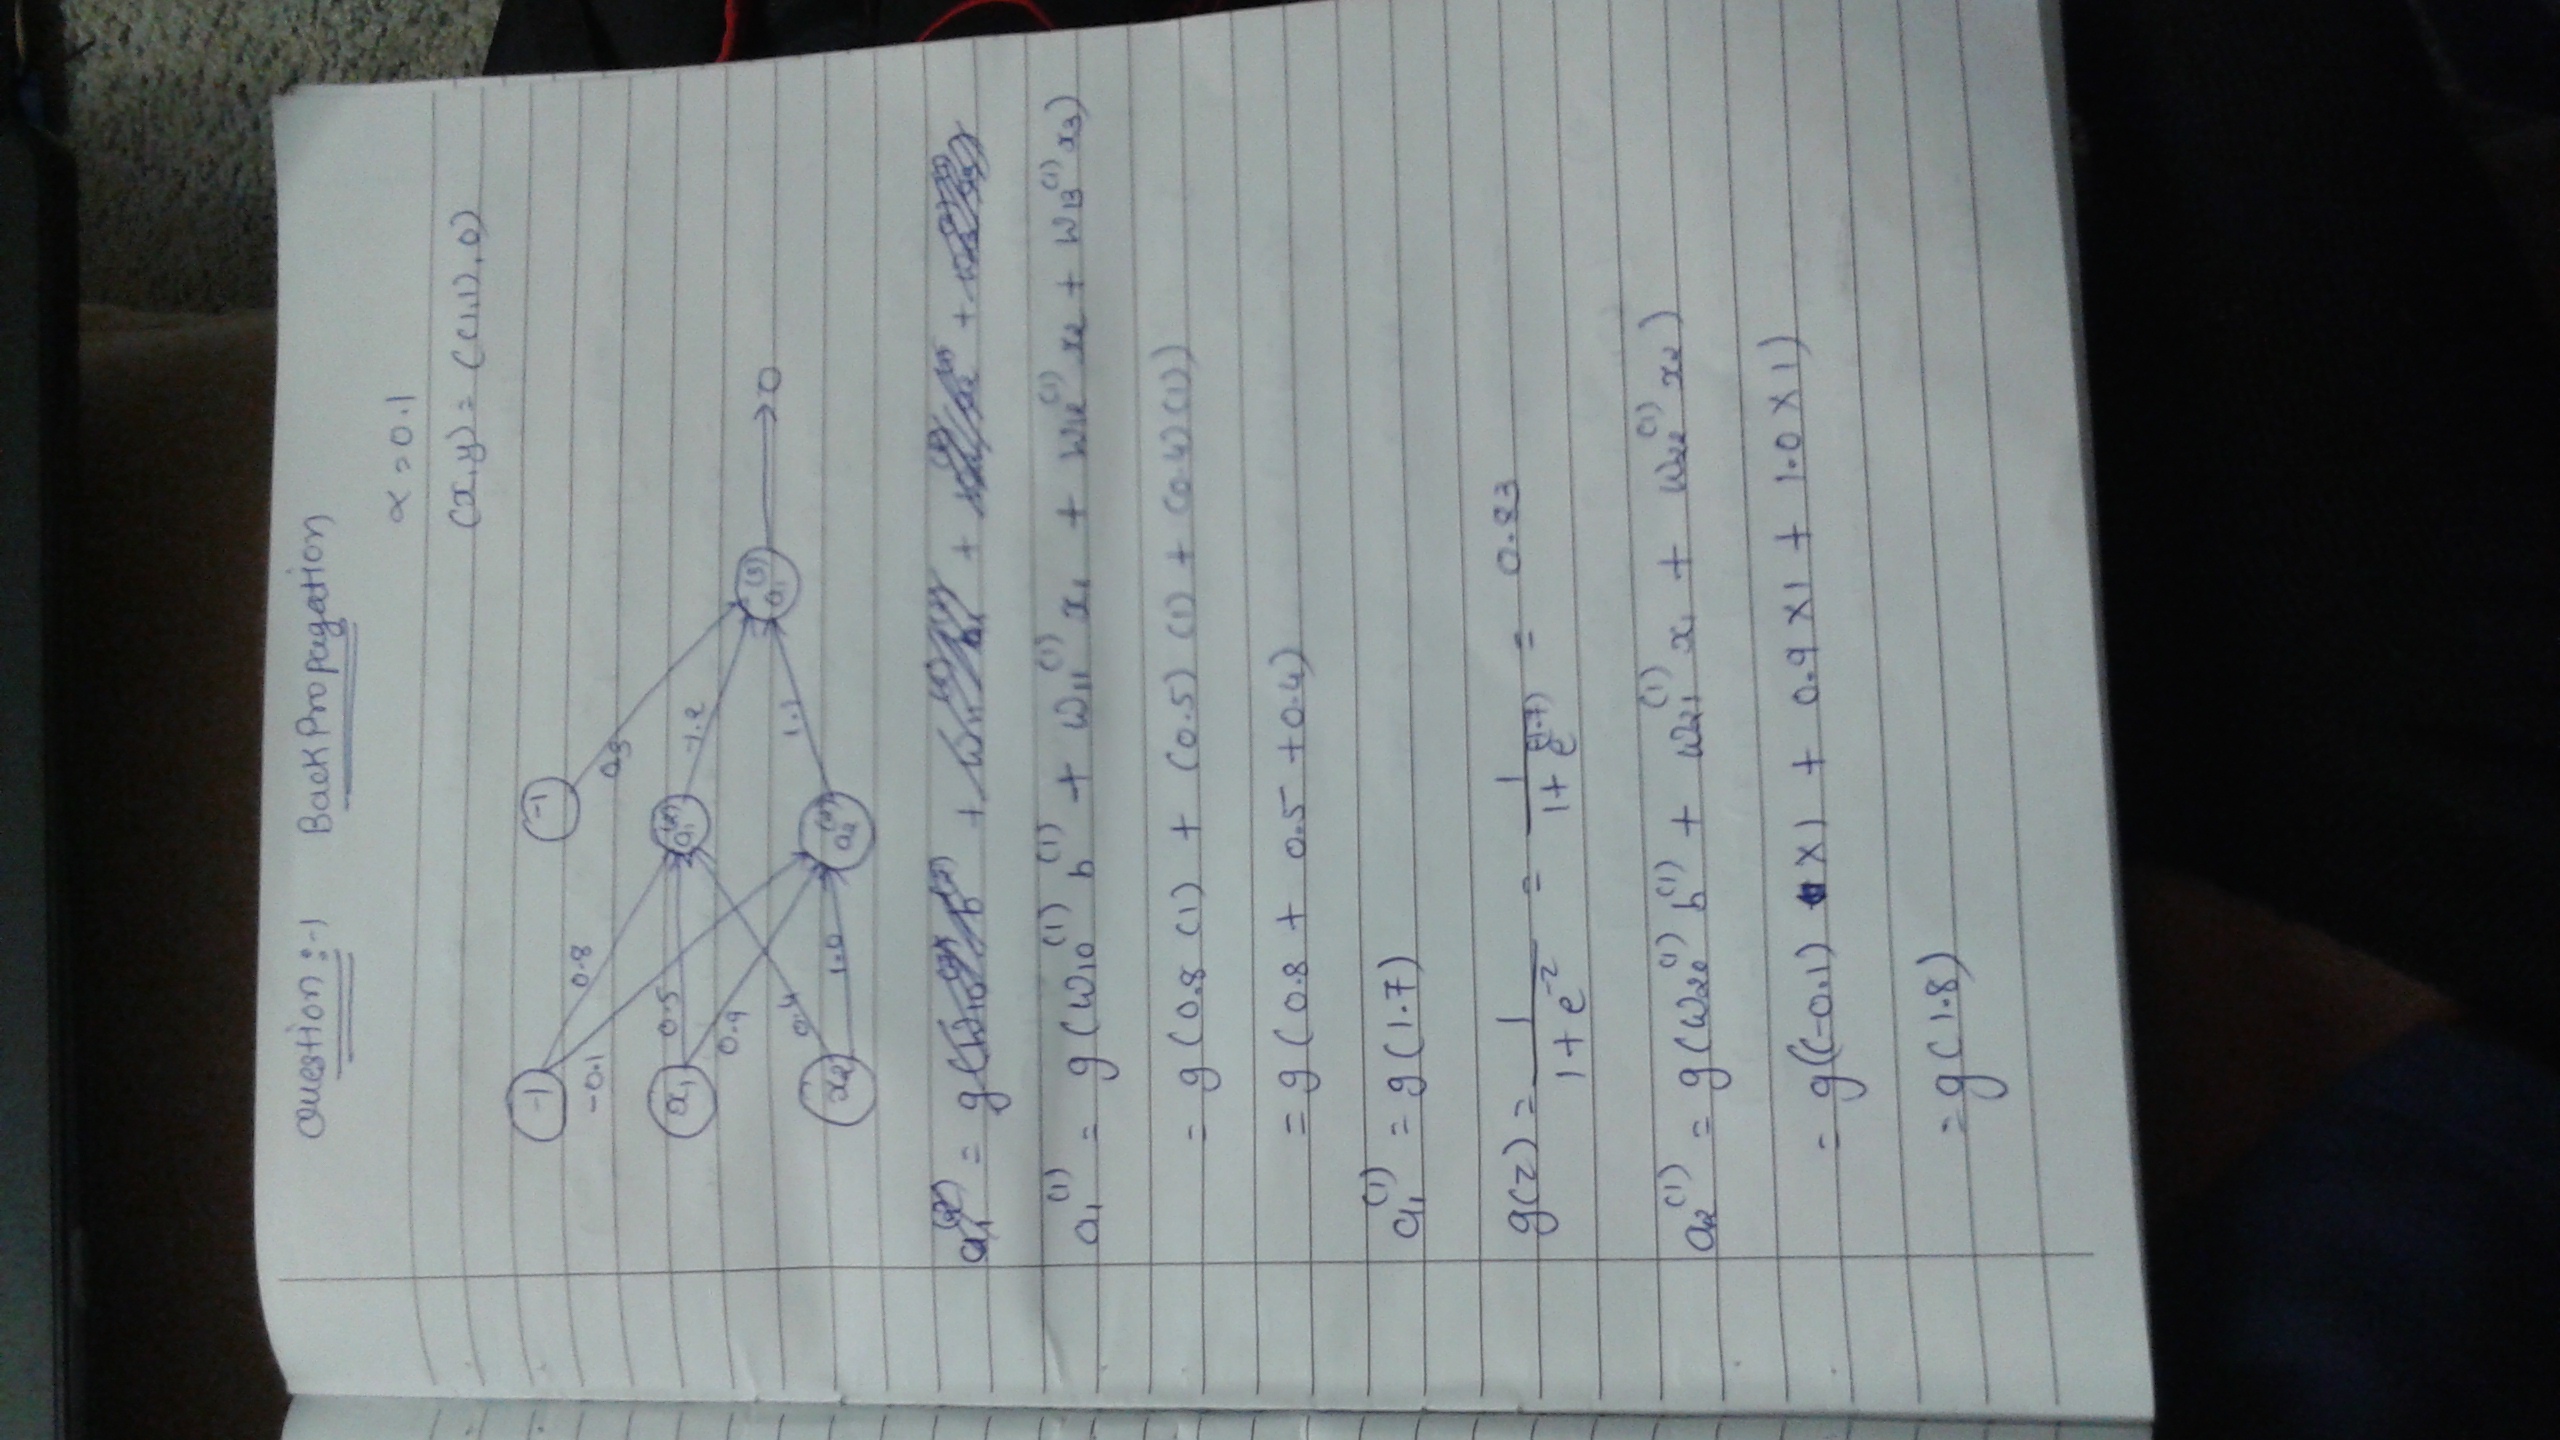 Question :-1 BackPropagation
α = 0.1
(x,y) = ((1,1),0)
-1 -1
-0.1 0.8
x₁ 0.5 a₁⁽²⁾ -1.2
0.9
a₁⁽³⁾ 0
0.4 1.1
x₂ 1.0 a₂⁽²⁾
a₁⁽²⁾ = g( + + +
a₁⁽¹⁾ = g(w₁₀⁽¹⁾ b⁽¹⁾ + w₁₁⁽¹⁾ x₁ + w₁₂⁽¹⁾ x₂ + w₁₃⁽¹⁾ x₃)
= g(0.8 (1) + (0.5) (1) + (0.4)(1))
= g(0.8 + 0.5 + 0.4)
a₁⁽¹⁾ = g(1.7)
g(z) = 1 / (1 + e^-z) = 1 / (1 + e^(-1.7)) = 0.83
a₂⁽¹⁾ = g(w₂₀⁽¹⁾ b⁽¹⁾ + w₂₁⁽¹⁾ x₁ + w₂₂⁽¹⁾ x₂)
= g((-0.1) × 1 + 0.9 × 1 + 1.0 × 1)
= g(1.8)